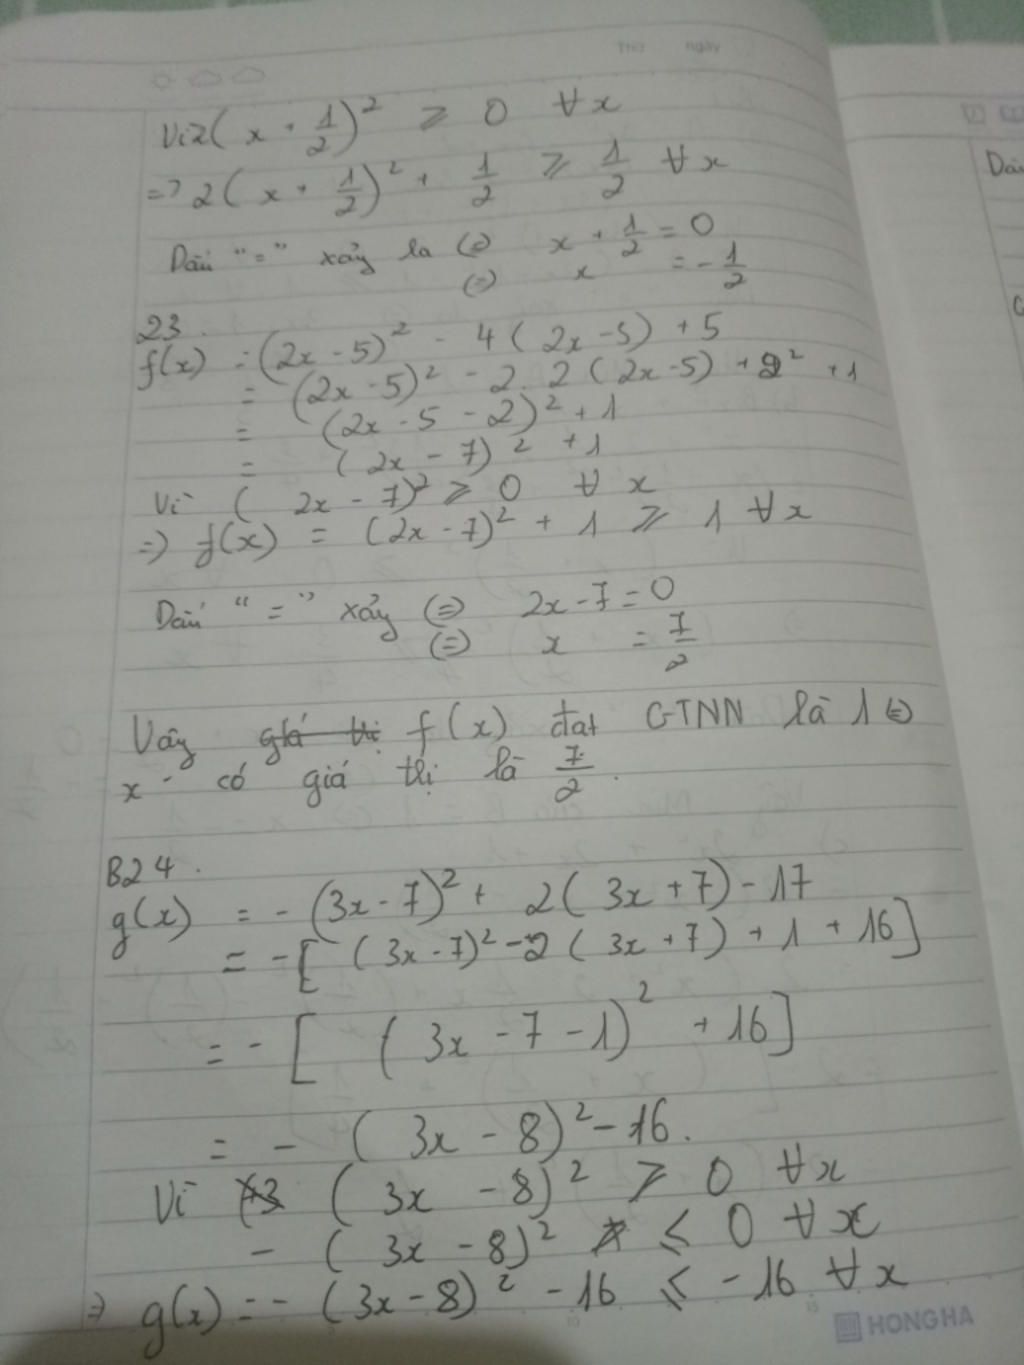 Thứ ngày
Vì 2(x + 1/2)² ≥ 0 ∀x
=> 2(x + 1/2)² + 1/2 ≥ 1/2 ∀x
Dấu "=" xảy ra (=) x + 1/2 = 0
(=) x = -1/2
23.
f(x) = (2x - 5)² - 4(2x - 5) + 5
= (2x - 5)² - 2.2(2x - 5) + 2² + 1
= (2x - 5 - 2)² + 1
= (2x - 7)² + 1
Vì (2x - 7)² ≥ 0 ∀x
=) f(x) = (2x - 7)² + 1 ≥ 1 ∀x
Dấu "=" xảy (=) 2x - 7 = 0
(=) x = 7/2
Vậy giá trị f(x) đạt GTNN là 1 (=)
x có giá thị là 7/2.
B24.
g(x) = -(3x - 7)² + 2(3x + 7) - 17
= -[(3x - 7)² - 2(3x + 7) + 1 + 16]
= -[(3x - 7 - 1)² + 16]
= -(3x - 8)² - 16.
Vì (3x - 8)² ≥ 0 ∀x
-(3x - 8)² ≤ 0 ∀x
=) g(x) = -(3x - 8)² - 16 ≤ -16 ∀x
5 10 15
HONG HA